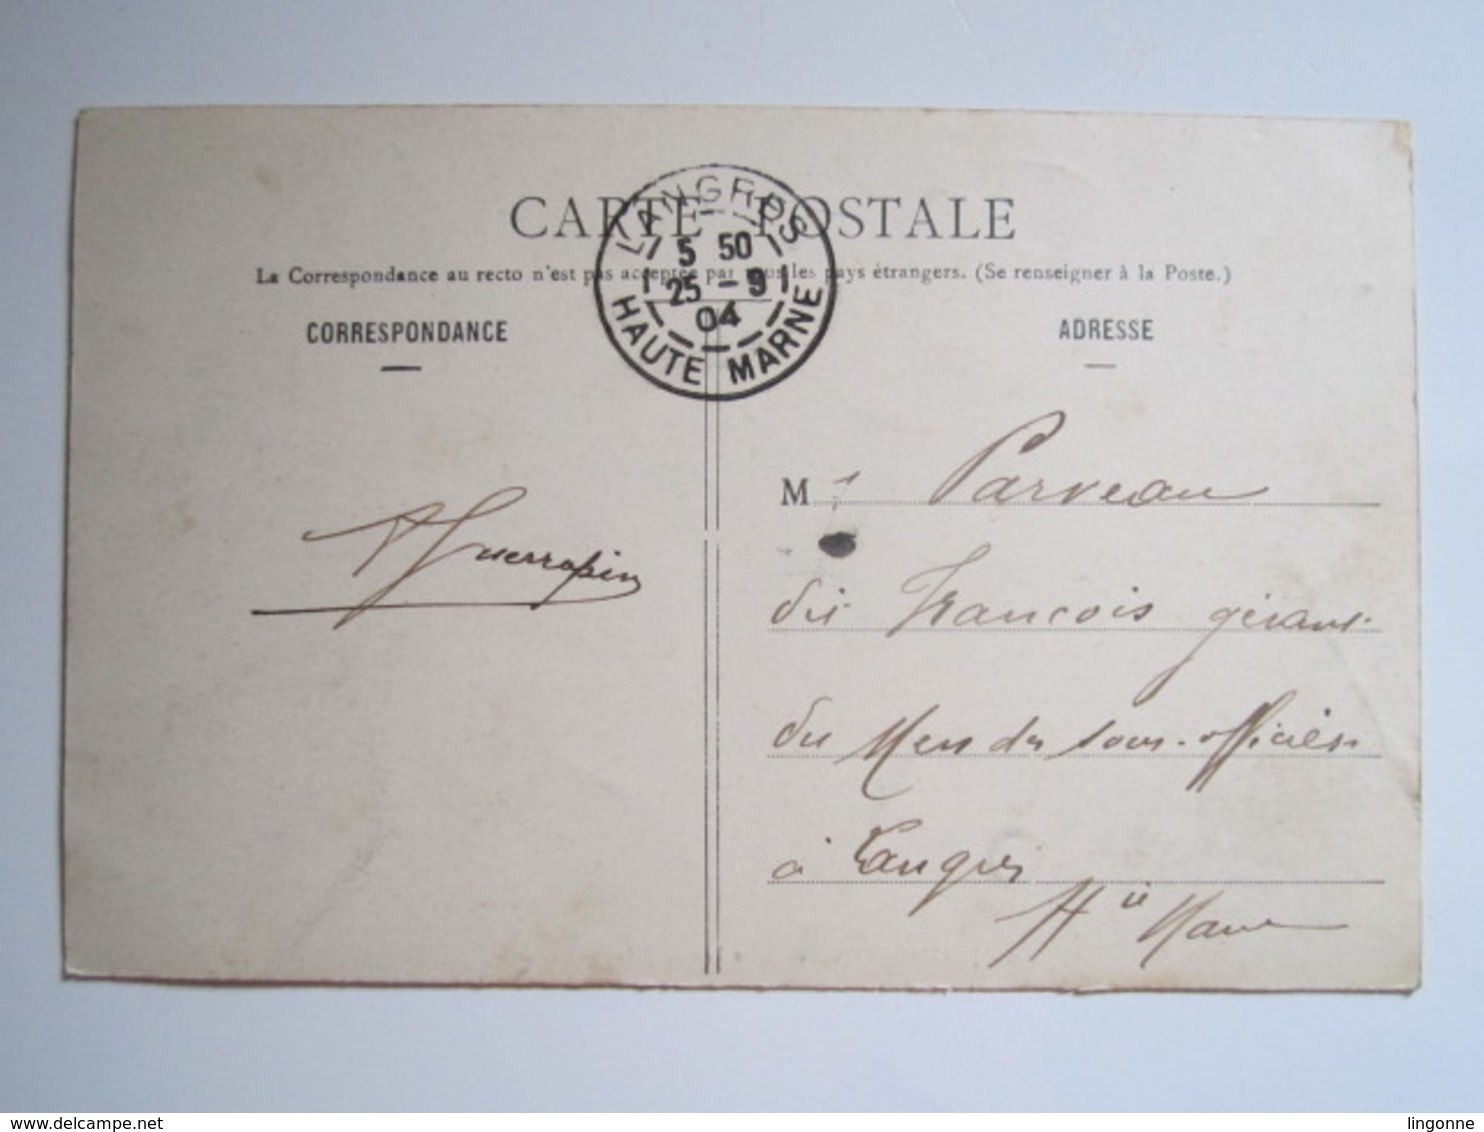 CARTE POSTALE
La Correspondance au recto n'est pas acceptée par tous les pays étrangers. (Se renseigner à la Poste.)
LANGRES
5 50
25 - 9
04
HAUTE MARNE
CORRESPONDANCE
ADRESSE
Guerrapin
M r Parveau
dit François gérant
du Mess des sous-officiers
à Langres
Hte Marne
www.delcampe.net
lingonne